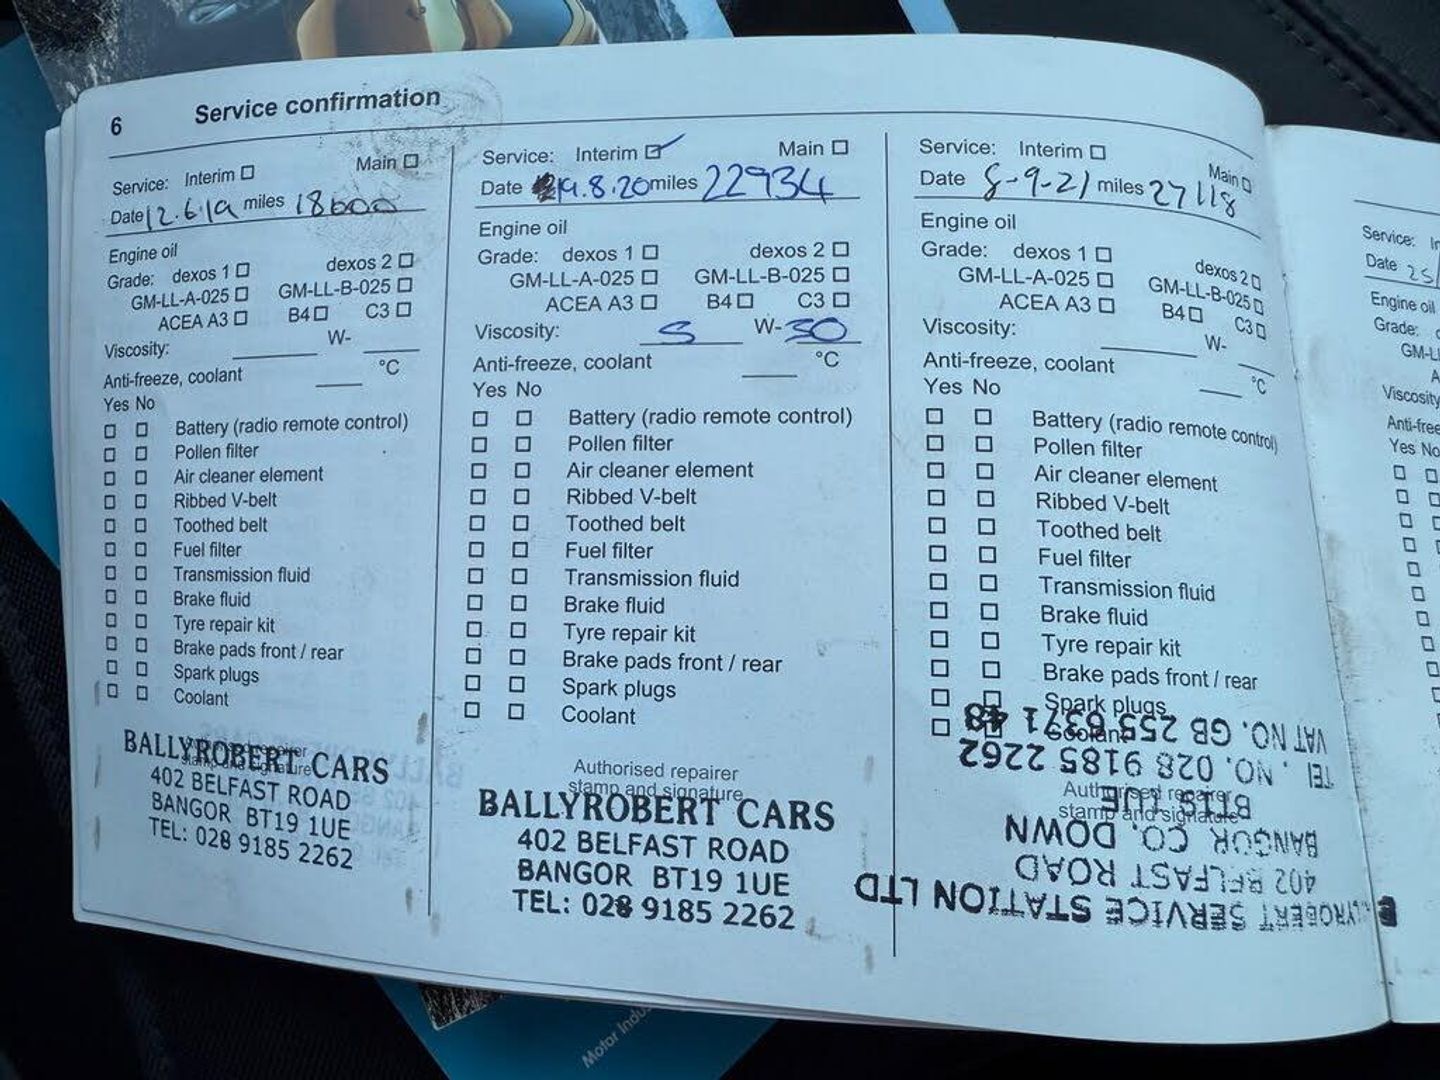 6 Service confirmation
Service: Interim Main
Date 12.6.19 miles 18600
Engine oil
Grade: dexos 1 dexos 2
GM-LL-A-025 GM-LL-B-025
ACEA A3 B4 C3
Viscosity: W-
Anti-freeze, coolant °C
Yes No
Battery (radio remote control)
Pollen filter
Air cleaner element
Ribbed V-belt
Toothed belt
Fuel filter
Transmission fluid
Brake fluid
Tyre repair kit
Brake pads front / rear
Spark plugs
Coolant
stamp and signature
BALLYROBERT CARS
402 BELFAST ROAD
BANGOR BT19 1UE
TEL: 028 9185 2262
Service: Interim Main
Date 19.8.20 miles 22934
Engine oil
Grade: dexos 1 dexos 2
GM-LL-A-025 GM-LL-B-025
ACEA A3 B4 C3
Viscosity: 5 W-30
Anti-freeze, coolant °C
Yes No
Battery (radio remote control)
Pollen filter
Air cleaner element
Ribbed V-belt
Toothed belt
Fuel filter
Transmission fluid
Brake fluid
Tyre repair kit
Brake pads front / rear
Spark plugs
Coolant
Authorised repairer
stamp and signature
BALLYROBERT CARS
402 BELFAST ROAD
BANGOR BT19 1UE
TEL: 028 9185 2262
Service: Interim Main
Date 8-9-21 miles 27118
Engine oil
Grade: dexos 1 dexos 2
GM-LL-A-025 GM-LL-B-025
ACEA A3 B4 C3
Viscosity: W-
Anti-freeze, coolant °C
Yes No
Battery (radio remote control)
Pollen filter
Air cleaner element
Ribbed V-belt
Toothed belt
Fuel filter
Transmission fluid
Brake fluid
Tyre repair kit
Brake pads front / rear
Spark plugs
Coolant
Authorised repairer
stamp and signature
BALLYROBERT SERVICE STATION LTD
402 BELFAST ROAD
BANGOR CO. DOWN
BT19 1UE
TEL. NO. 028 9185 2262
VAT NO. GB 255 6371 48
Service:
Date 25
Engine oil
Grade:
Viscosity
Yes No
Motor